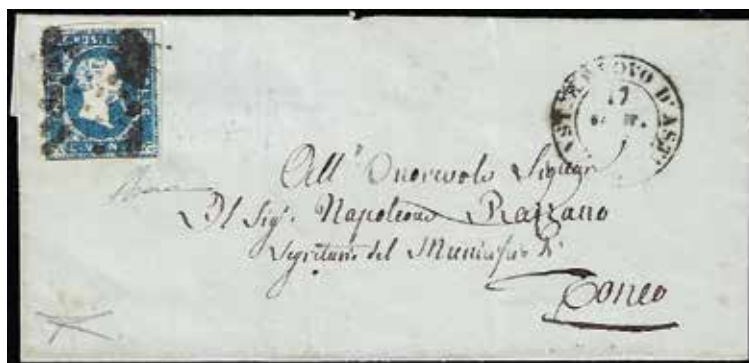 POSTE
C. VENTI
STELNUOVO D'AST
17
All' Onorevole Signor
Il Sig.r Napoleone Razzano
Segretario del Municipio di
Tonco